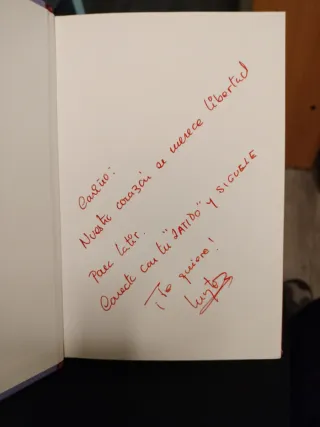 Cariño:
Nuestro corazón se merece libertad
Para latir.
Conecta con tu "LATIDO" Y SIGUELE
Te quiero!